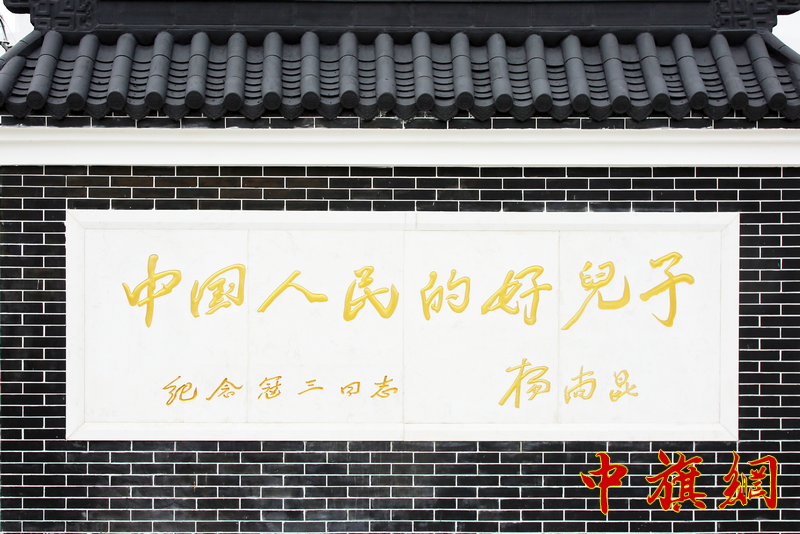 中国人民的好兒子
纪念冠三同志
杨尚昆
中旗網